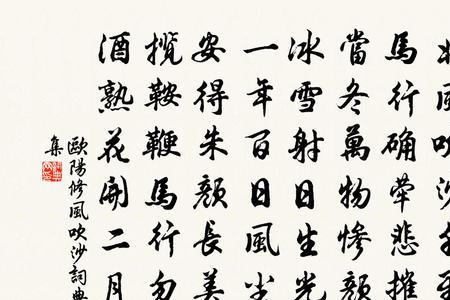 風吹沙千
馬行确犖悲摧
當冬萬物慘顏
冰雪射日生光
一年百日風尘
安得朱顏長美
攬鞍鞭馬行勿
酒熟花開二月
歐陽修風吹沙詞典
集